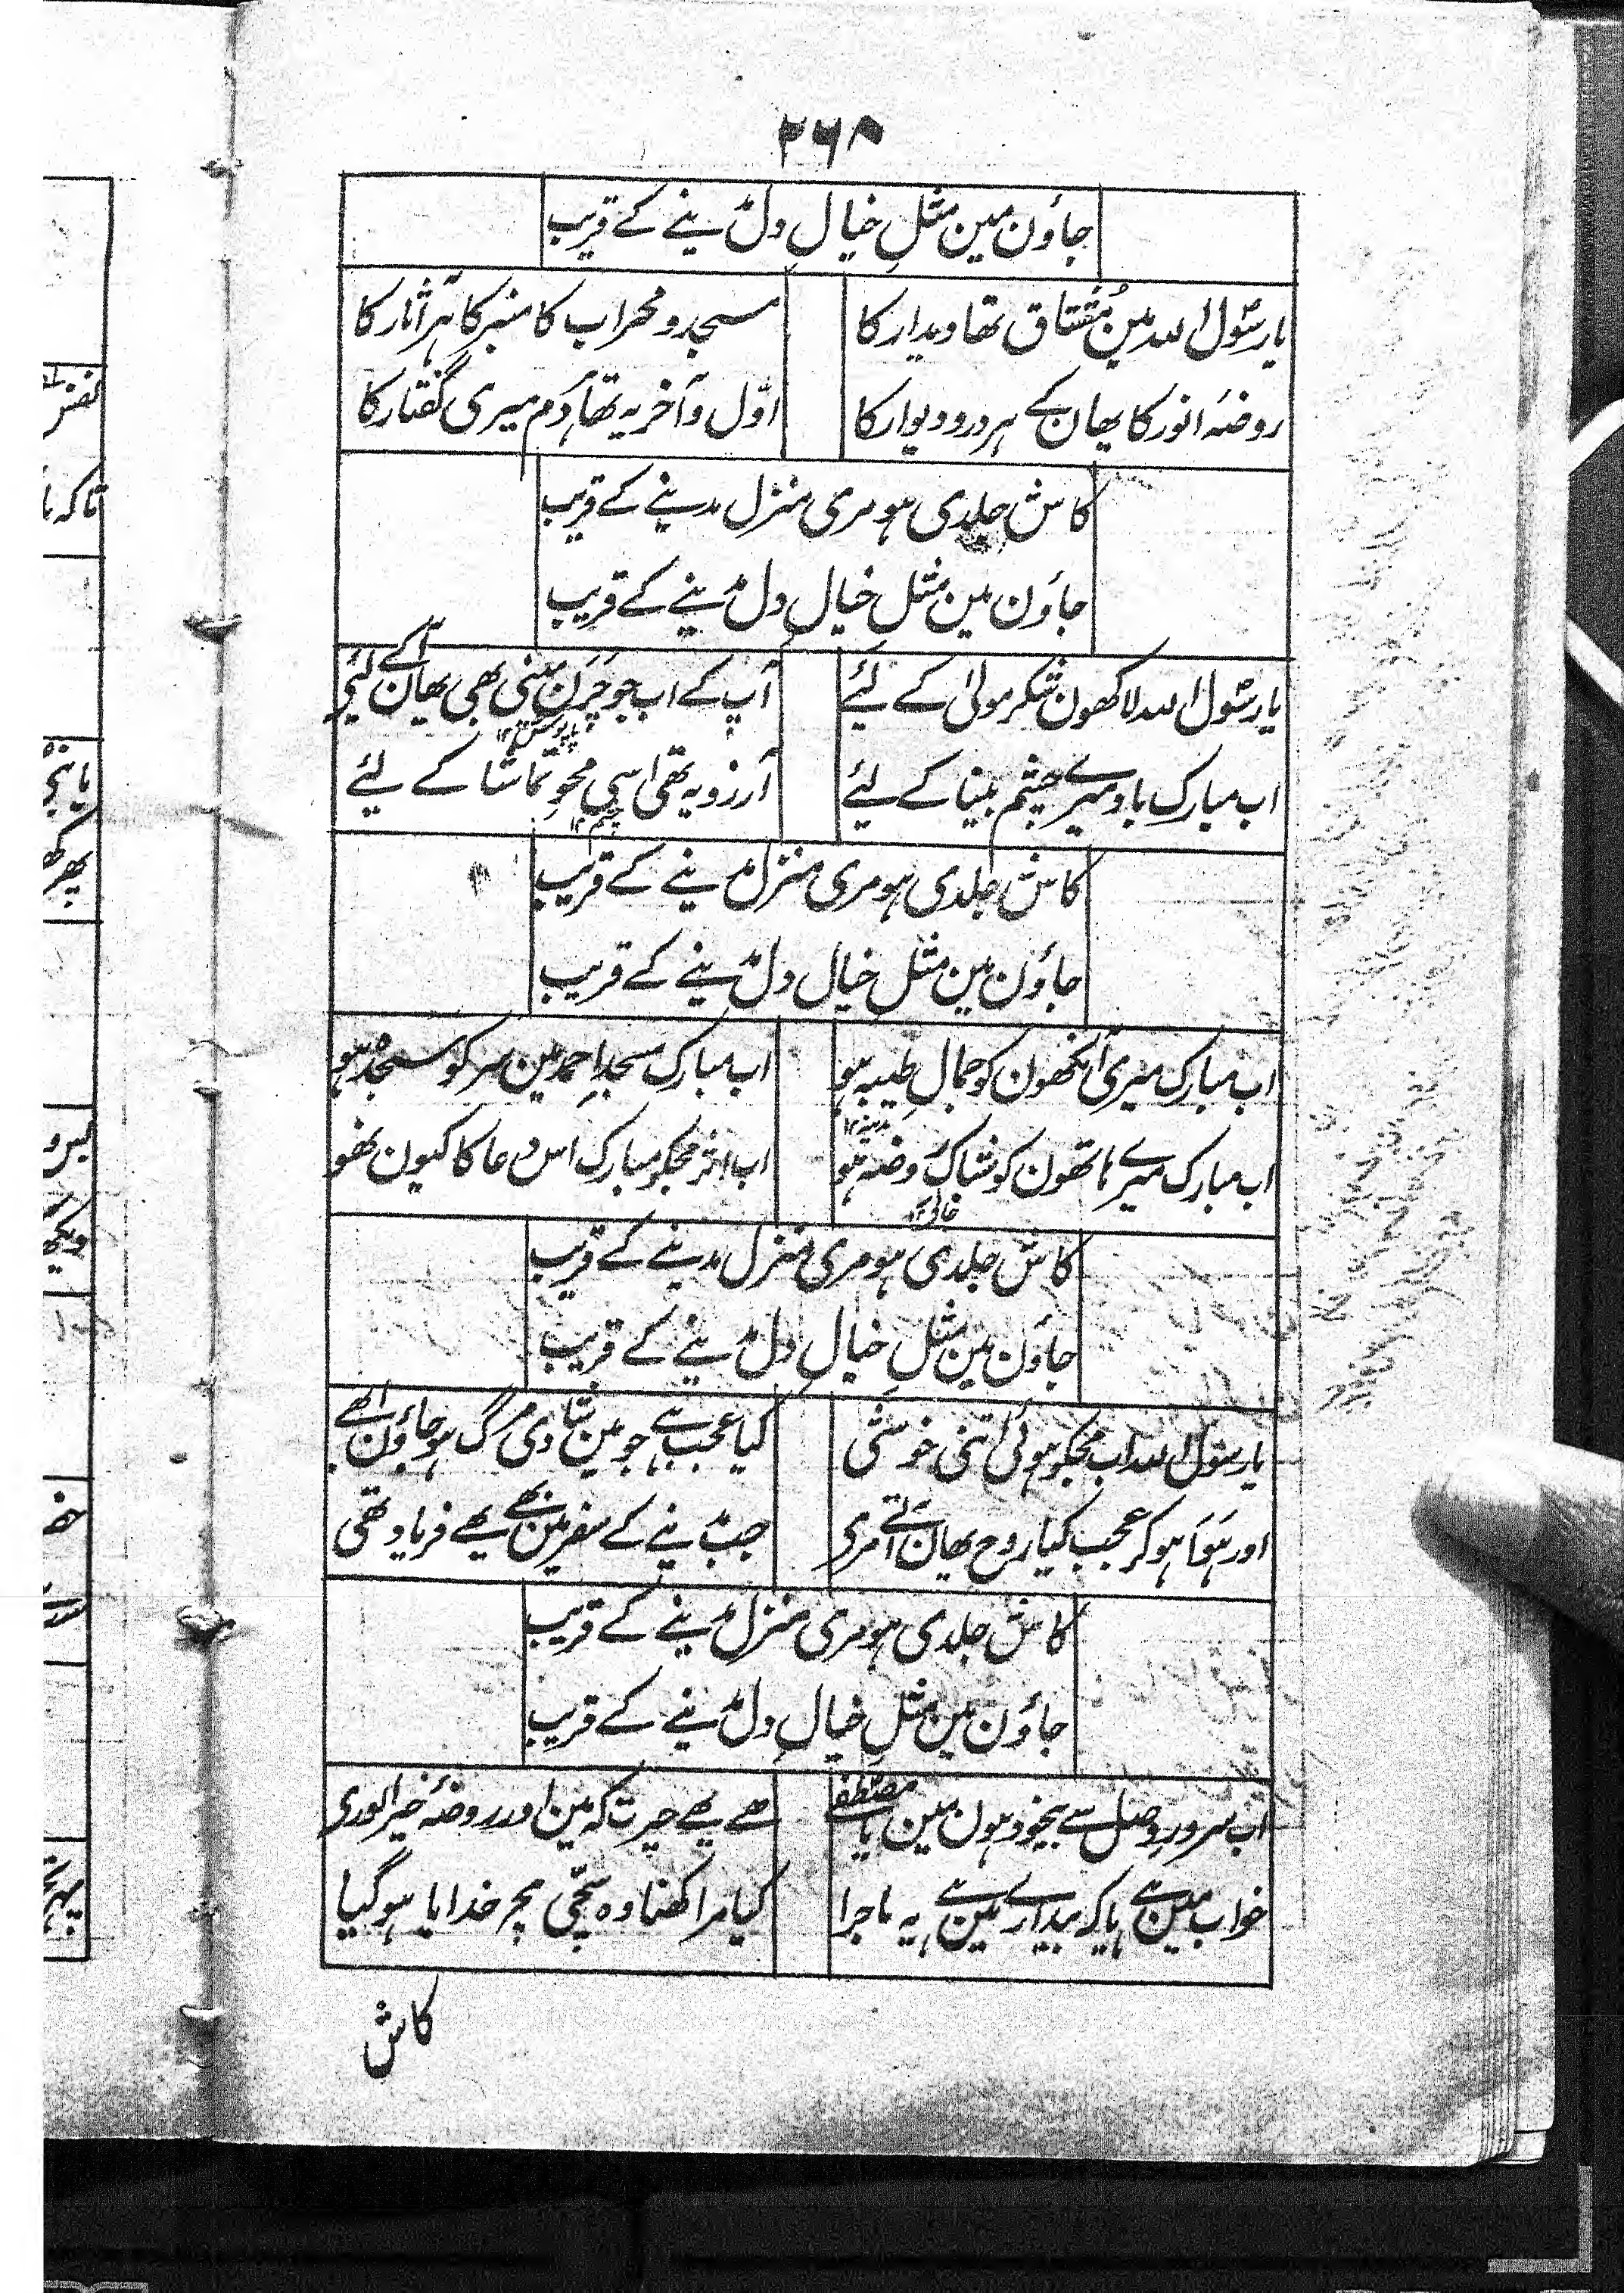 ۲۶۸
جاؤن مین مثلِ خیالِ دل مدینے کے قریب
یا رسول اللہ مین مُشتاق تھا دیدار کا
مسجد و محراب کا منبر کا ہر آثار کا
روضۂ انور کا یہان کے ہر در و دیوار کا
اوّل و آخر یہ تھا ہر دم میری گفتار کا
کاش جلدی ہو مری منزل مدینے کے قریب
جاؤن مین مثلِ خیالِ دل مدینے کے قریب
یا رسول اللہ لاکھون شکر مولیٰ کے لئے
آپ کے اب جو چَرَن مینی بھی یہان آکے لئے
پاپوش ۱۲
اب مبارک باد میرے چشم بینا کے لئے
آرزو یہ تھی اسی محوِ تماشا کے لئے
چشم ۱۲
کاش جلدی ہو مری منزل مدینے کے قریب
جاؤن مین مثلِ خیال دل مدینے کے قریب
اب مبارک میری آنکھون کو جمالِ طیبہ ہو
اب مبارک مسجدِ احمد مین سر کو سجدہ ہو
مدینہ ۱۲
اب مبارک میرے ہاتھون کو شباک روضہ ہو
اب اثر مجکو مبارک اس دعا کا کیون نہو
جالی ۱۲
کاش جلدی ہو مری منزل مدینے کے قریب
جاؤن مین مثلِ خیالِ دل مدینے کے قریب
یا رسول اللہ اب مجکو ہوئی اتنی خوشی
کیا عجب ہے جو مین شادی مرگ ہو جاؤن ابھے
اور ہَوَا ہو کر عجب کیا روح یہان آتے مری
جب مدینے کے سفر مین بھے یھے فریاد تھی
کاش جلدی ہو مری منزل مدینے کے قریب
جاؤن مین مثلِ خیالِ دل مدینے کے قریب
اب سرورِ وصل سے بیخود ہون مین یا مصطفےٰ
ھے یھے حیرت کہ مین اور روضۂ خیر الوری
خواب مین ہے یا کہ بیدارے مین ہے یہ ماجرا
کیا مرا کھنا وہ سچّی مچ خدایا ہو گیا
کاش